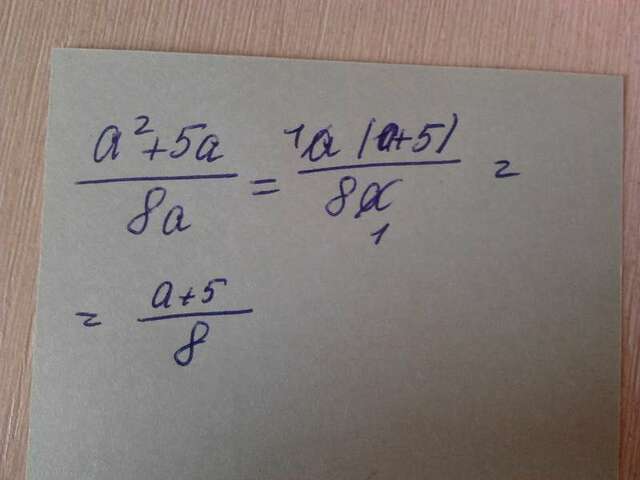 a²+5a / 8a = ¹a(a+5) / 8a₁ =
= a+5 / 8